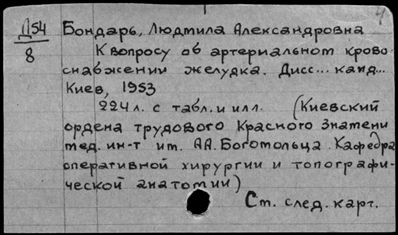 Д54
8
Бондарь, Людмила Александровна
К вопросу об артериальном крово-
снабжении желудка. Дисс... канд...
Киев, 1953
224 л. с табл. и илл. (Киевский
ордена трудового Красного Знамени
мед. ин-т им. АА. Богомольца. Кафедра
оперативной хирургии и топографи-
ческой анатомии)
См. след. карт.